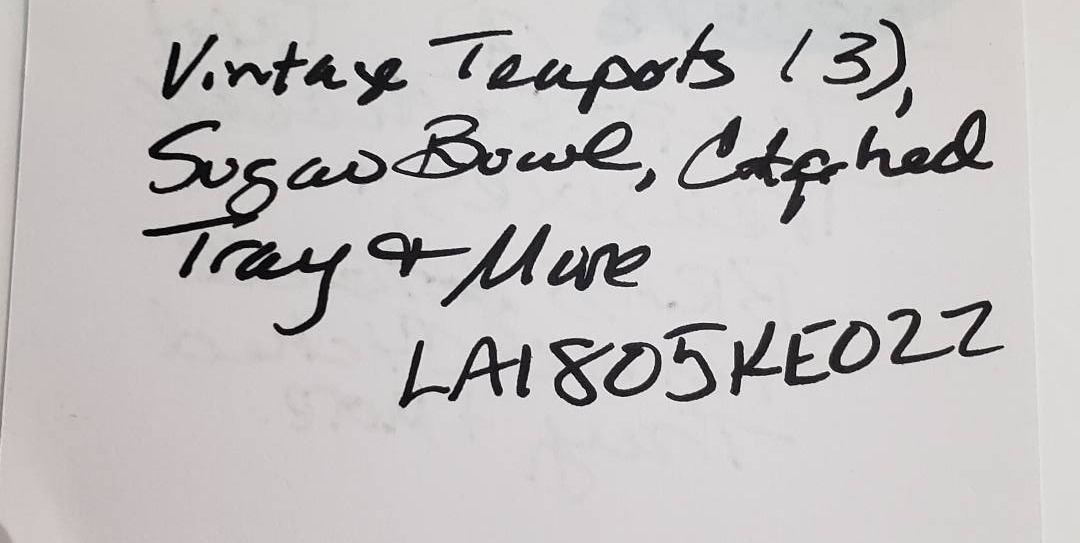 Vintage Teapots (3),
Sugar Bowl,
Tray & More
LA1805KE022